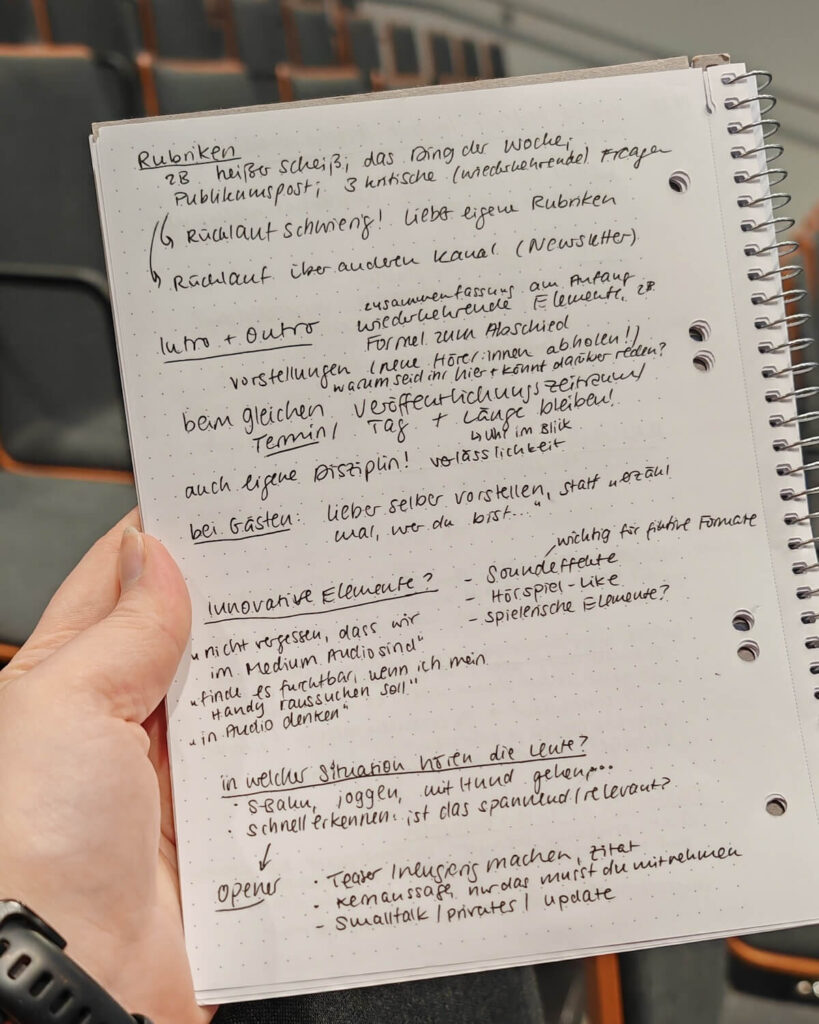 Rubriken
zB heißer Scheiß; das Ding der Woche;
Publikumspost; 3 kritische (wiederkehrende) Fragen
Rücklauf schwierig! Lieber eigene Rubriken
Rücklauf über anderen Kanal (Newsletter)
Intro + Outro
zusammenfassung am Anfang
wiederkehrende Elemente, zB
Formel zum Abschied
vorstellungen (neue Hörer:innen abholen!)
warum seid ihr hier + könnt darüber reden?
beim gleichen Veröffentlichungszeitraum/
Termin/ Tag + Länge bleiben!
↳ Uhr im Blik
auch eigene Disziplin! verlässlichkeit
bei Gästen: lieber selber vorstellen, statt „erzähl
mal, wer du bist..."
Innovative Elemente?
- Soundeffekte
wichtig für fiktive Formate
- Hörspiel-like
- spielerische Elemente?
„nicht vergessen, dass wir
im Medium Audio sind"
„finde es furchtbar, wenn ich mein
Handy raussuchen soll"
„in Audio denken"
in welcher Situation hören die Leute?
· S-Bahn, joggen, mit Hund gehen,...
· schnell erkennen: ist das spannend/relevant?
Opener
· Teaser/neugierig machen, zitat
· Kernaussage, nur das musst du mitnehmen
- Smalltalk/privates/update